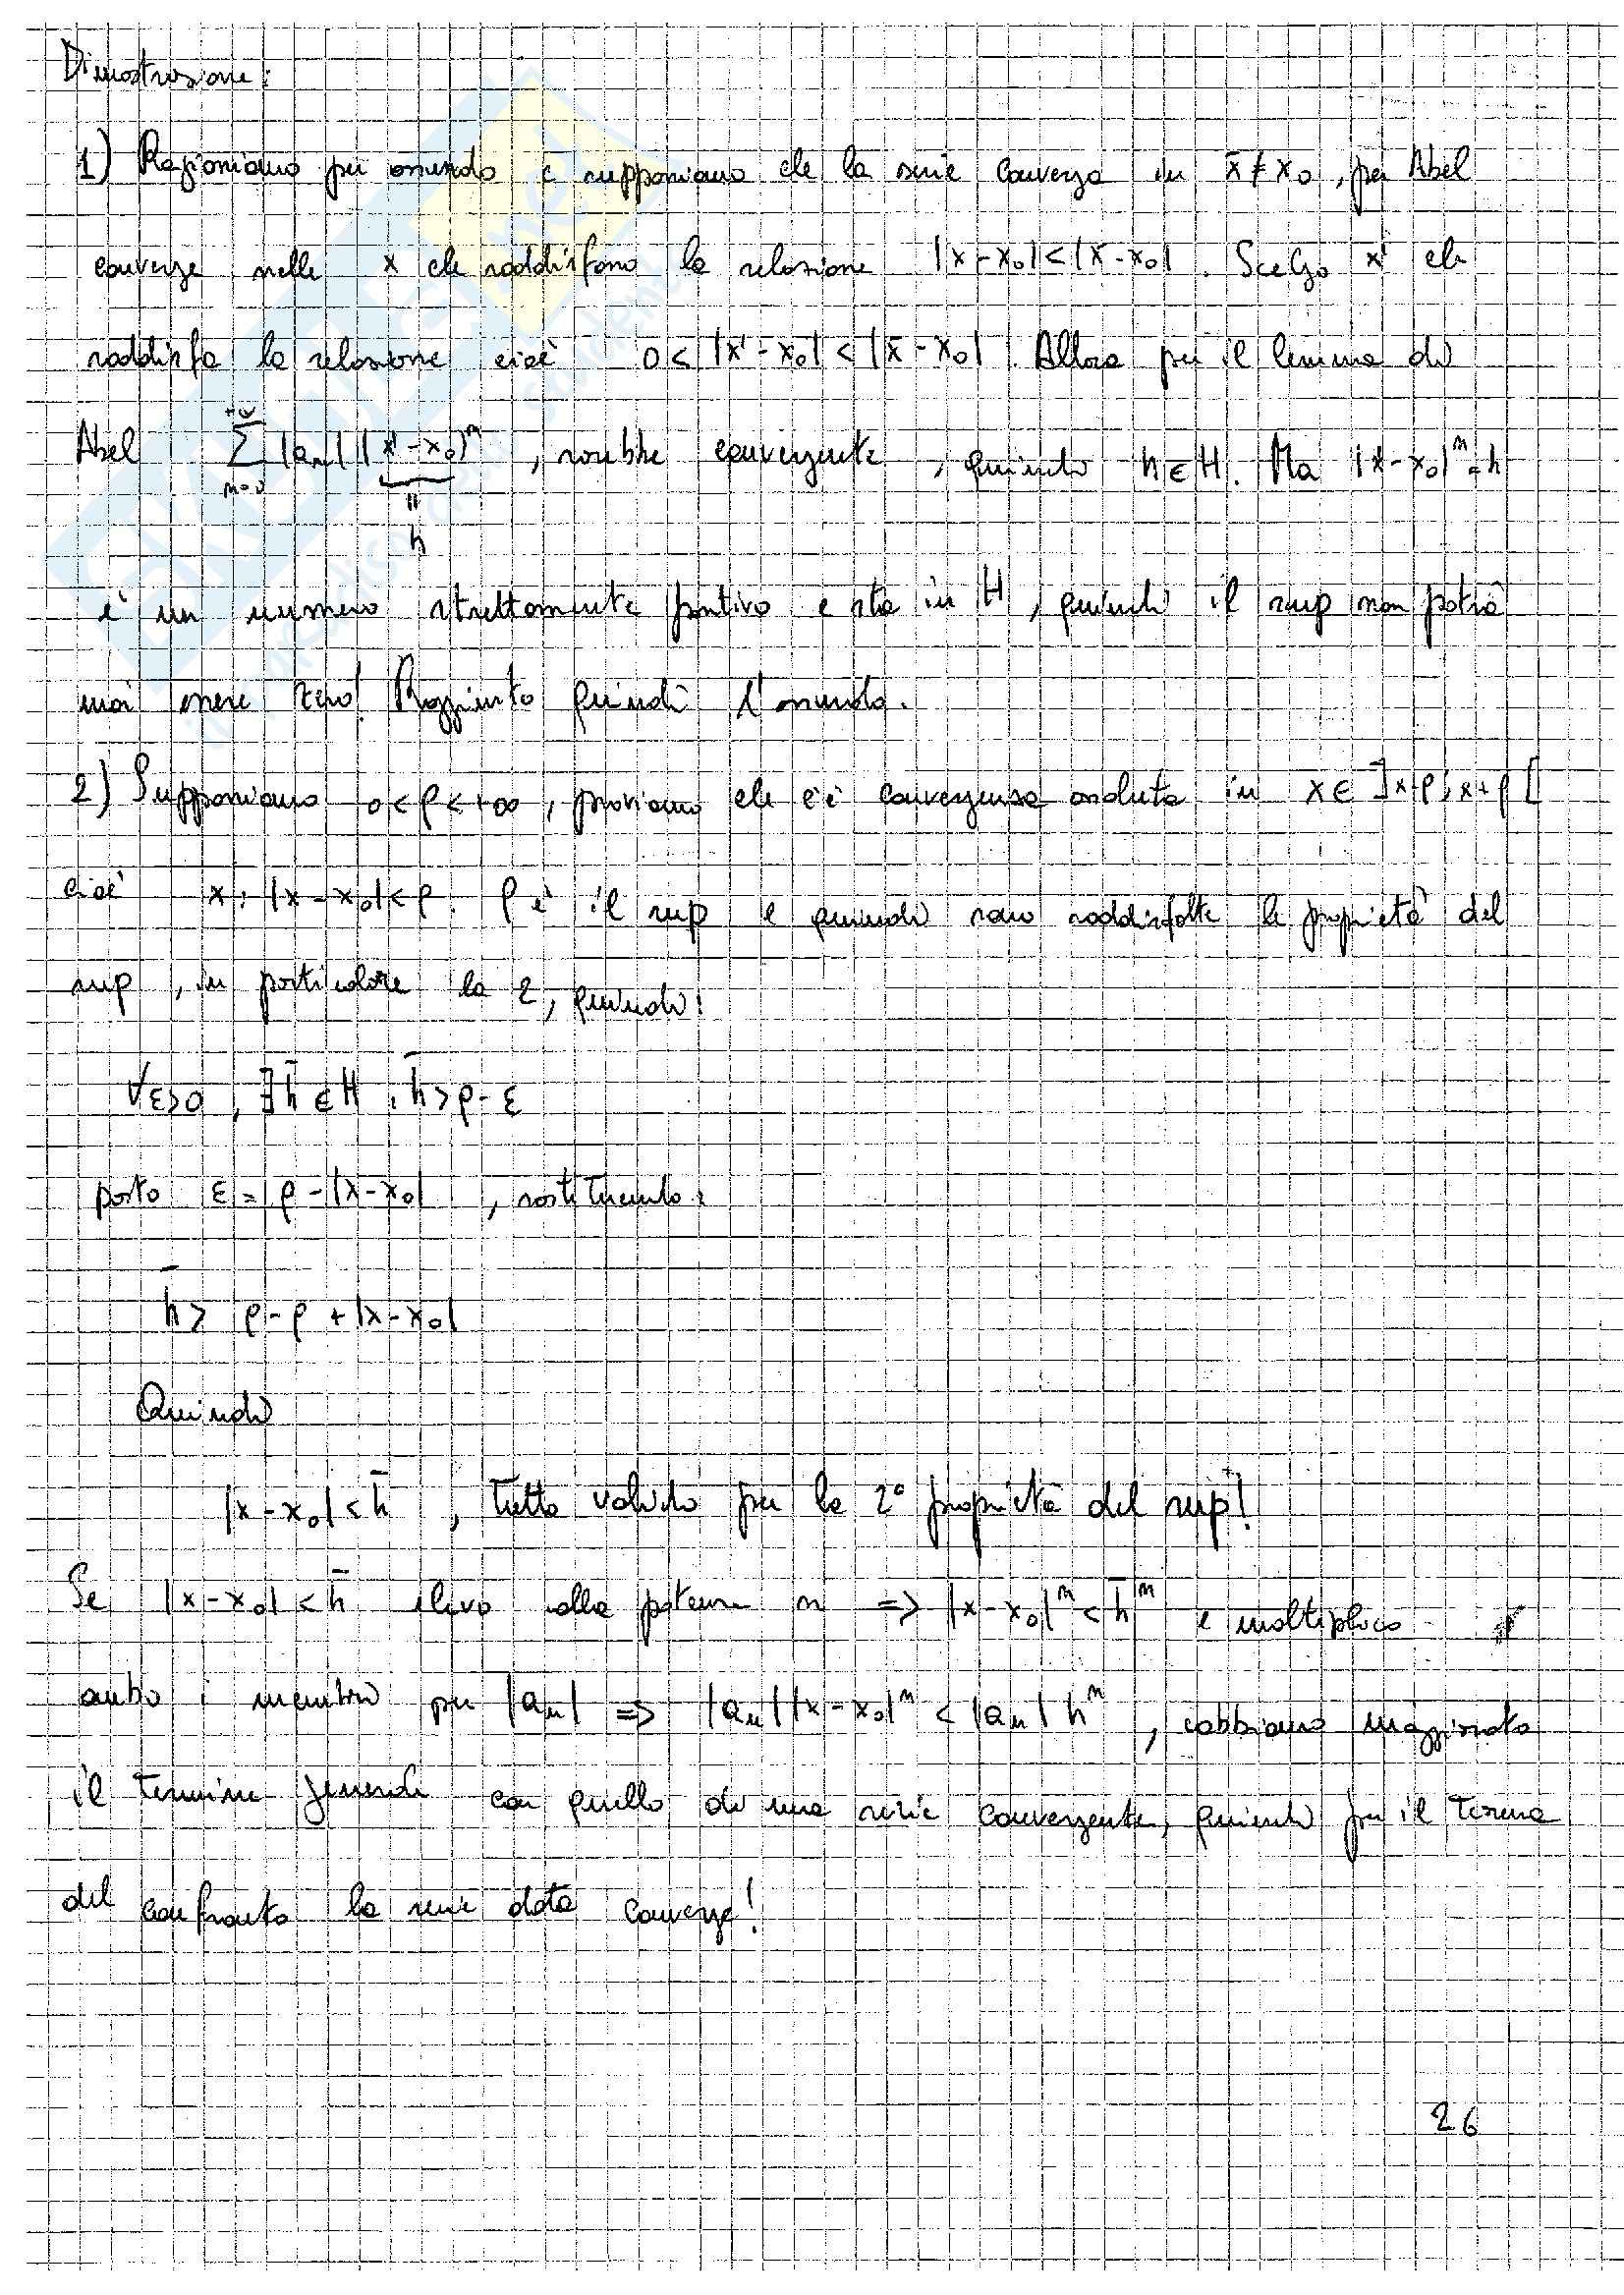 Dimostrazione:
1) Ragioniamo per assurdo e supponiamo che la serie converga in x̄ ≠ x₀, per Abel
converge nelle x che soddisfano la relazione |x-x₀|<|x̄-x₀|. Scelgo x' che
soddisfa la relazione cioè 0 < |x'-x₀| < |x̄-x₀|. Allora per il lemma di
Abel \sum_{n=0}^{+∞} |aₙ| |x'-x₀|ⁿ, sarebbe convergente, quindi h ∈ H. Ma |x'-x₀|ⁿ=h
=
h
è un numero strettamente positivo e sta in H, quindi il sup non potrà
mai essere zero! Raggiunto quindi l'assurdo.
2) Supponiamo 0<ρ<+∞, proviamo che c'è convergenza assoluta in x∈ ]x-ρ; x+ρ[
cioè x: |x-x₀|<ρ. ρ è il sup e quindi sono soddisfatte le proprietà del
sup, in particolare la 2, quindi:
∀ε>0, ∃h̄∈H: h̄>ρ-ε
posto ε = ρ-|x-x₀|, sostituendo:
h̄ > ρ-ρ+|x-x₀|
Quindi
|x-x₀|<h̄, tutto valido per la 2° proprietà del sup!
Se |x-x₀|<h̄ elevo alla potenza n => |x-x₀|ⁿ<h̄ⁿ e moltiplico
ambo i membri per |aₙ| => |aₙ||x-x₀|ⁿ < |aₙ| hⁿ, abbiamo maggiorato
il termine generale con quello di una serie convergente, quindi per il teorema
del confronto la serie data converge!
26